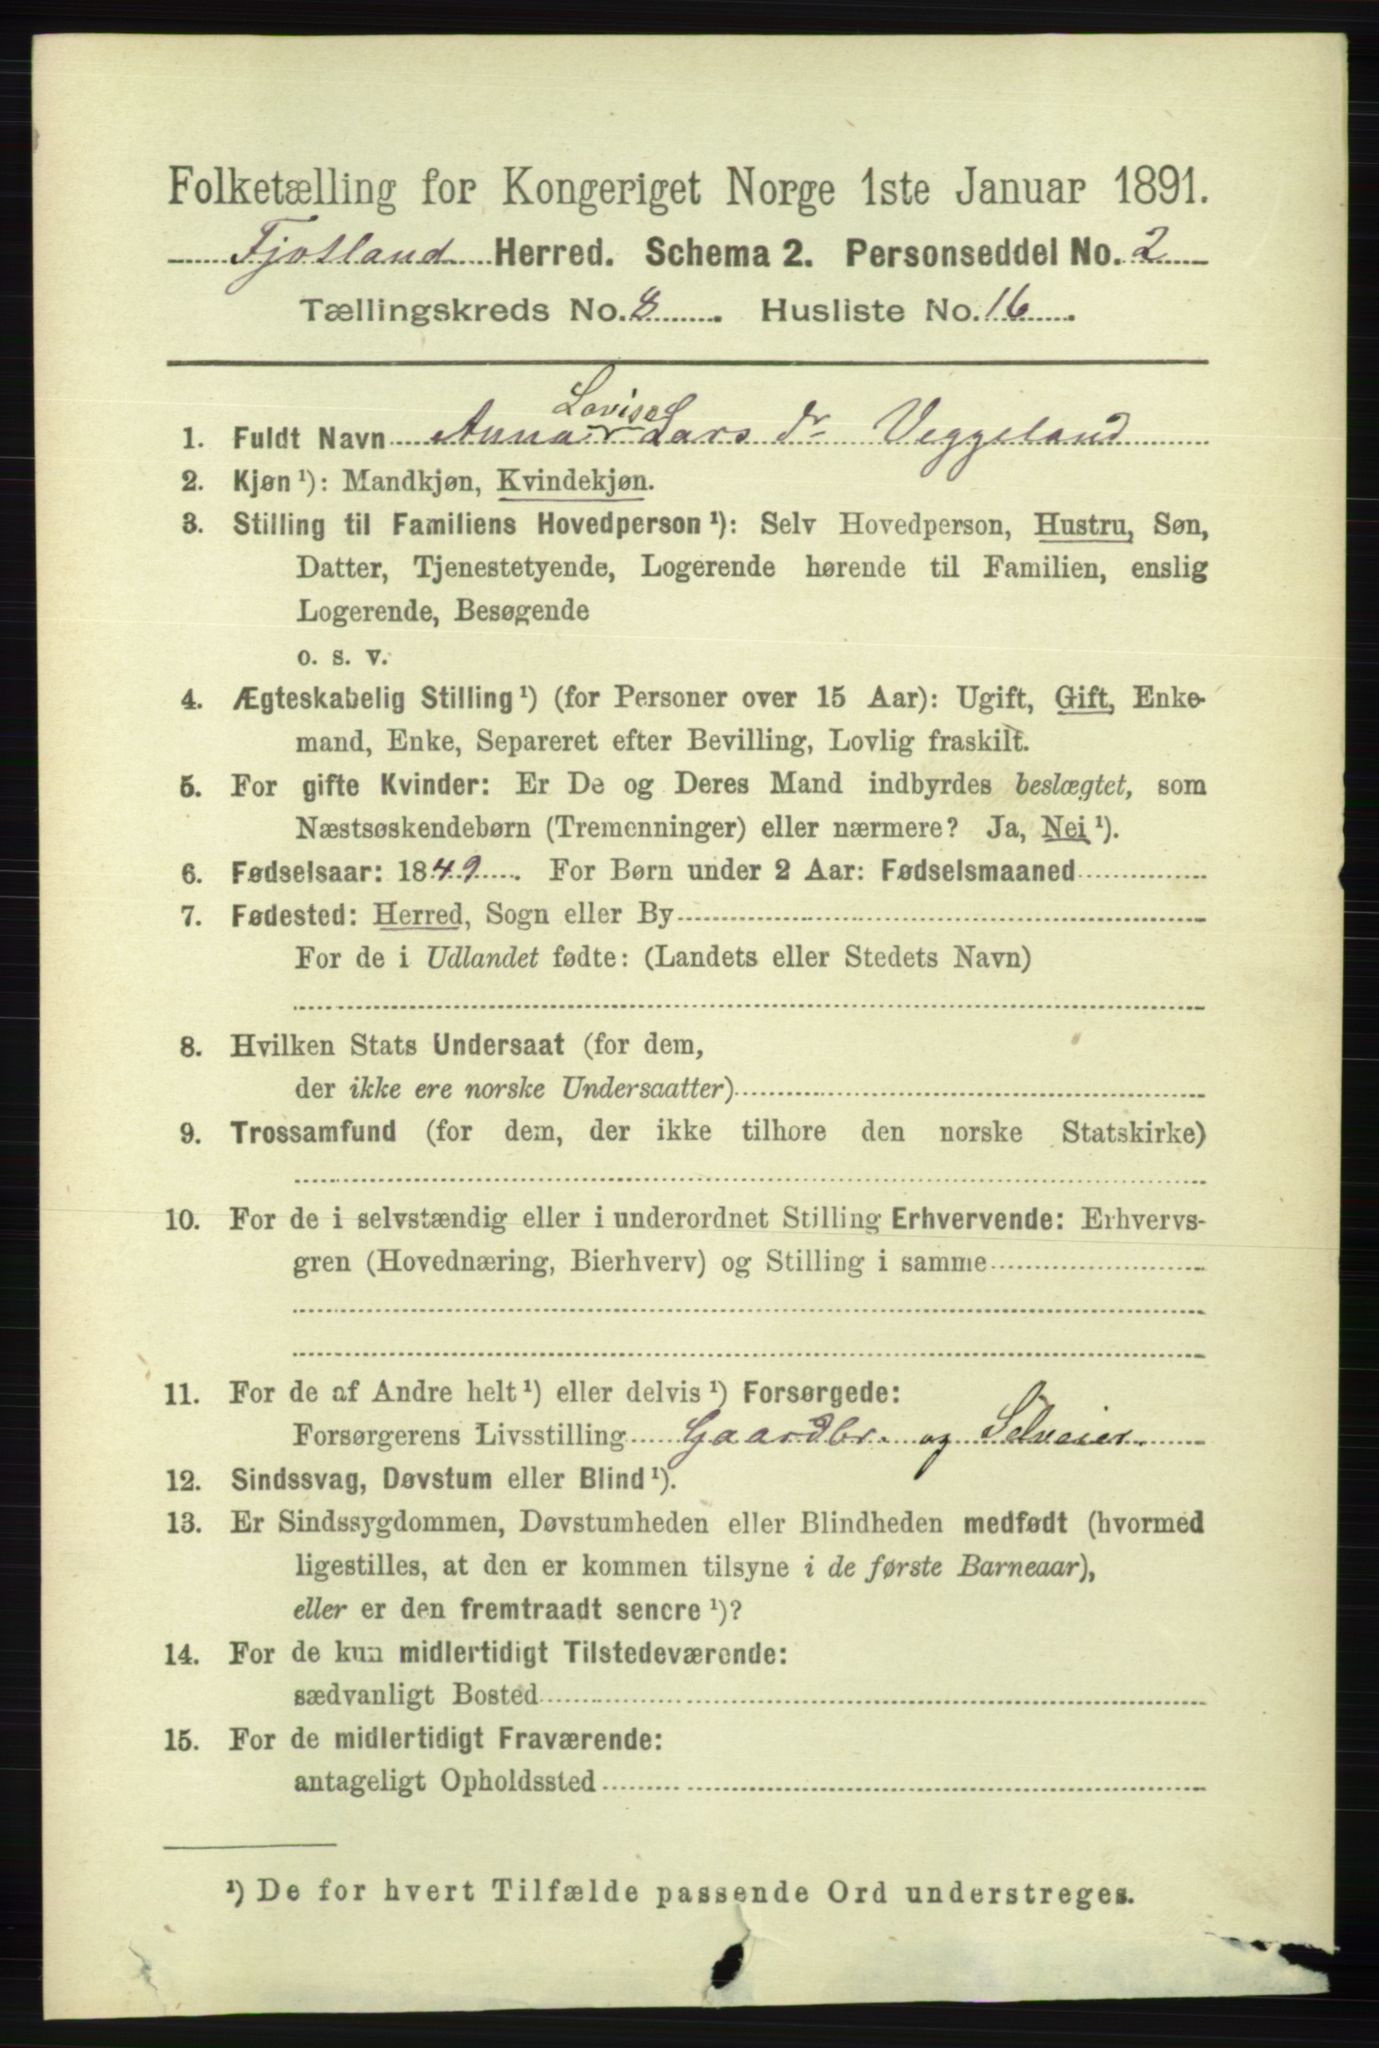 Folketælling for Kongeriget Norge 1ste Januar 1891.
Fjotland Herred. Schema 2. Personseddel No. 2
Tællingskreds No. 8. Husliste No. 16.
Lovise
1. Fuldt Navn Anna Lars dr Veggeland
2. Kjøn ¹): Mandkjøn, Kvindekjøn.
3. Stilling til Familiens Hovedperson ¹): Selv Hovedperson, Hustru, Søn,
Datter, Tjenestetyende, Logerende hørende til Familien, enslig
Logerende, Besøgende
o. s. v.
4. Ægteskabelig Stilling ¹) (for Personer over 15 Aar): Ugift, Gift, Enke-
mand, Enke, Separeret efter Bevilling, Lovlig fraskilt.
5. For gifte Kvinder: Er De og Deres Mand indbyrdes beslægtet, som
Næstsøskendebørn (Tremenninger) eller nærmere? Ja, Nei ¹).
6. Fødselsaar: 1849. For Børn under 2 Aar: Fødselsmaaned
7. Fødested: Herred, Sogn eller By
For de i Udlandet fødte: (Landets eller Stedets Navn)
8. Hvilken Stats Undersaat (for dem,
der ikke ere norske Undersaatter)
9. Trossamfund (for dem, der ikke tilhore den norske Statskirke)
10. For de i selvstændig eller i underordnet Stilling Erhvervende: Erhvervs-
gren (Hovednæring, Bierhverv) og Stilling i samme
11. For de af Andre helt ¹) eller delvis ¹) Forsørgede:
Forsørgerens Livsstilling Gaardbr. og Selveier.
12. Sindssvag, Døvstum eller Blind ¹).
13. Er Sindssygdommen, Døvstumheden eller Blindheden medfødt (hvormed
ligestilles, at den er kommen tilsyne i de første Barneaar),
eller er den fremtraadt senere ¹)?
14. For de kun midlertidigt Tilstedeværende:
sædvanligt Bosted
15. For de midlertidigt Fraværende:
antageligt Opholdssted
¹) De for hvert Tilfælde passende Ord understreges.